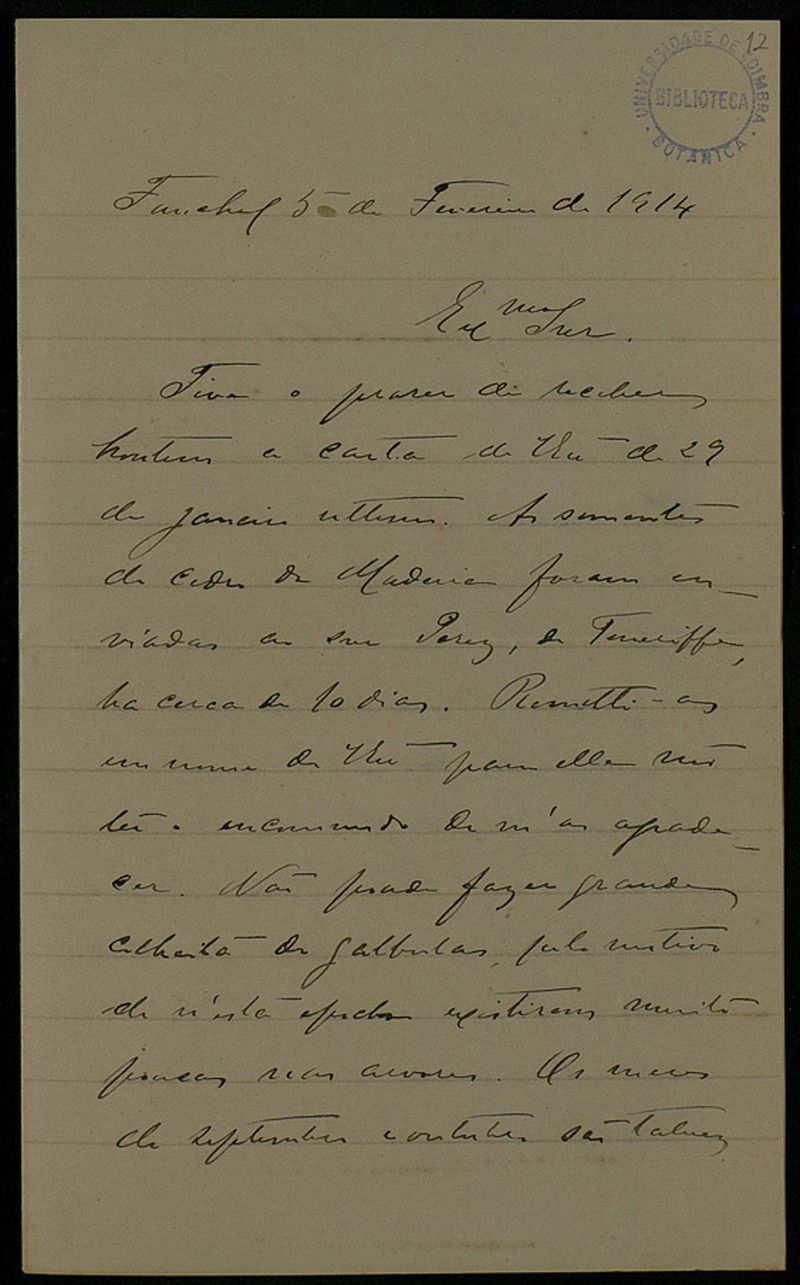 12
UNIVERSIDADE DE COIMBRA
BIBLIOTECA
BOTANICA
Funchal 5 de Fevereiro de 1914
Exmo Snr.
Tive o prazer de receber
hontem a carta de V Exa de 29
de janeiro ultimo. As sementes
de cedro da Madeira foram en-
viadas ao snr Perez, de Teneriffe,
ha cerca de 10 dias. Remetti-as
em nome de V Exa para elle não
ter o encommodo de m'as agrade-
cer. Não pude fazer grande
colheita de galbulas, pelo motivo
de n'esta epocha existirem muito
poucas nas arvores. Os meses
de septembro e outubro são talvez